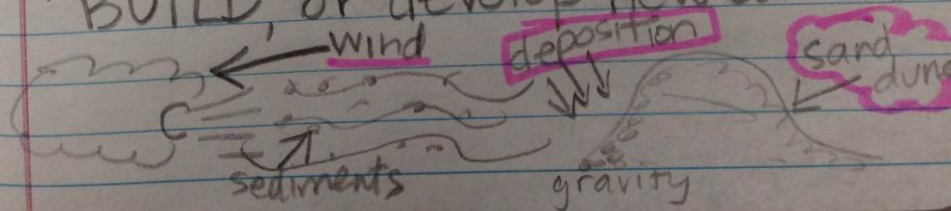 BUILD, or develop
wind
deposition
sand
sediments
gravity